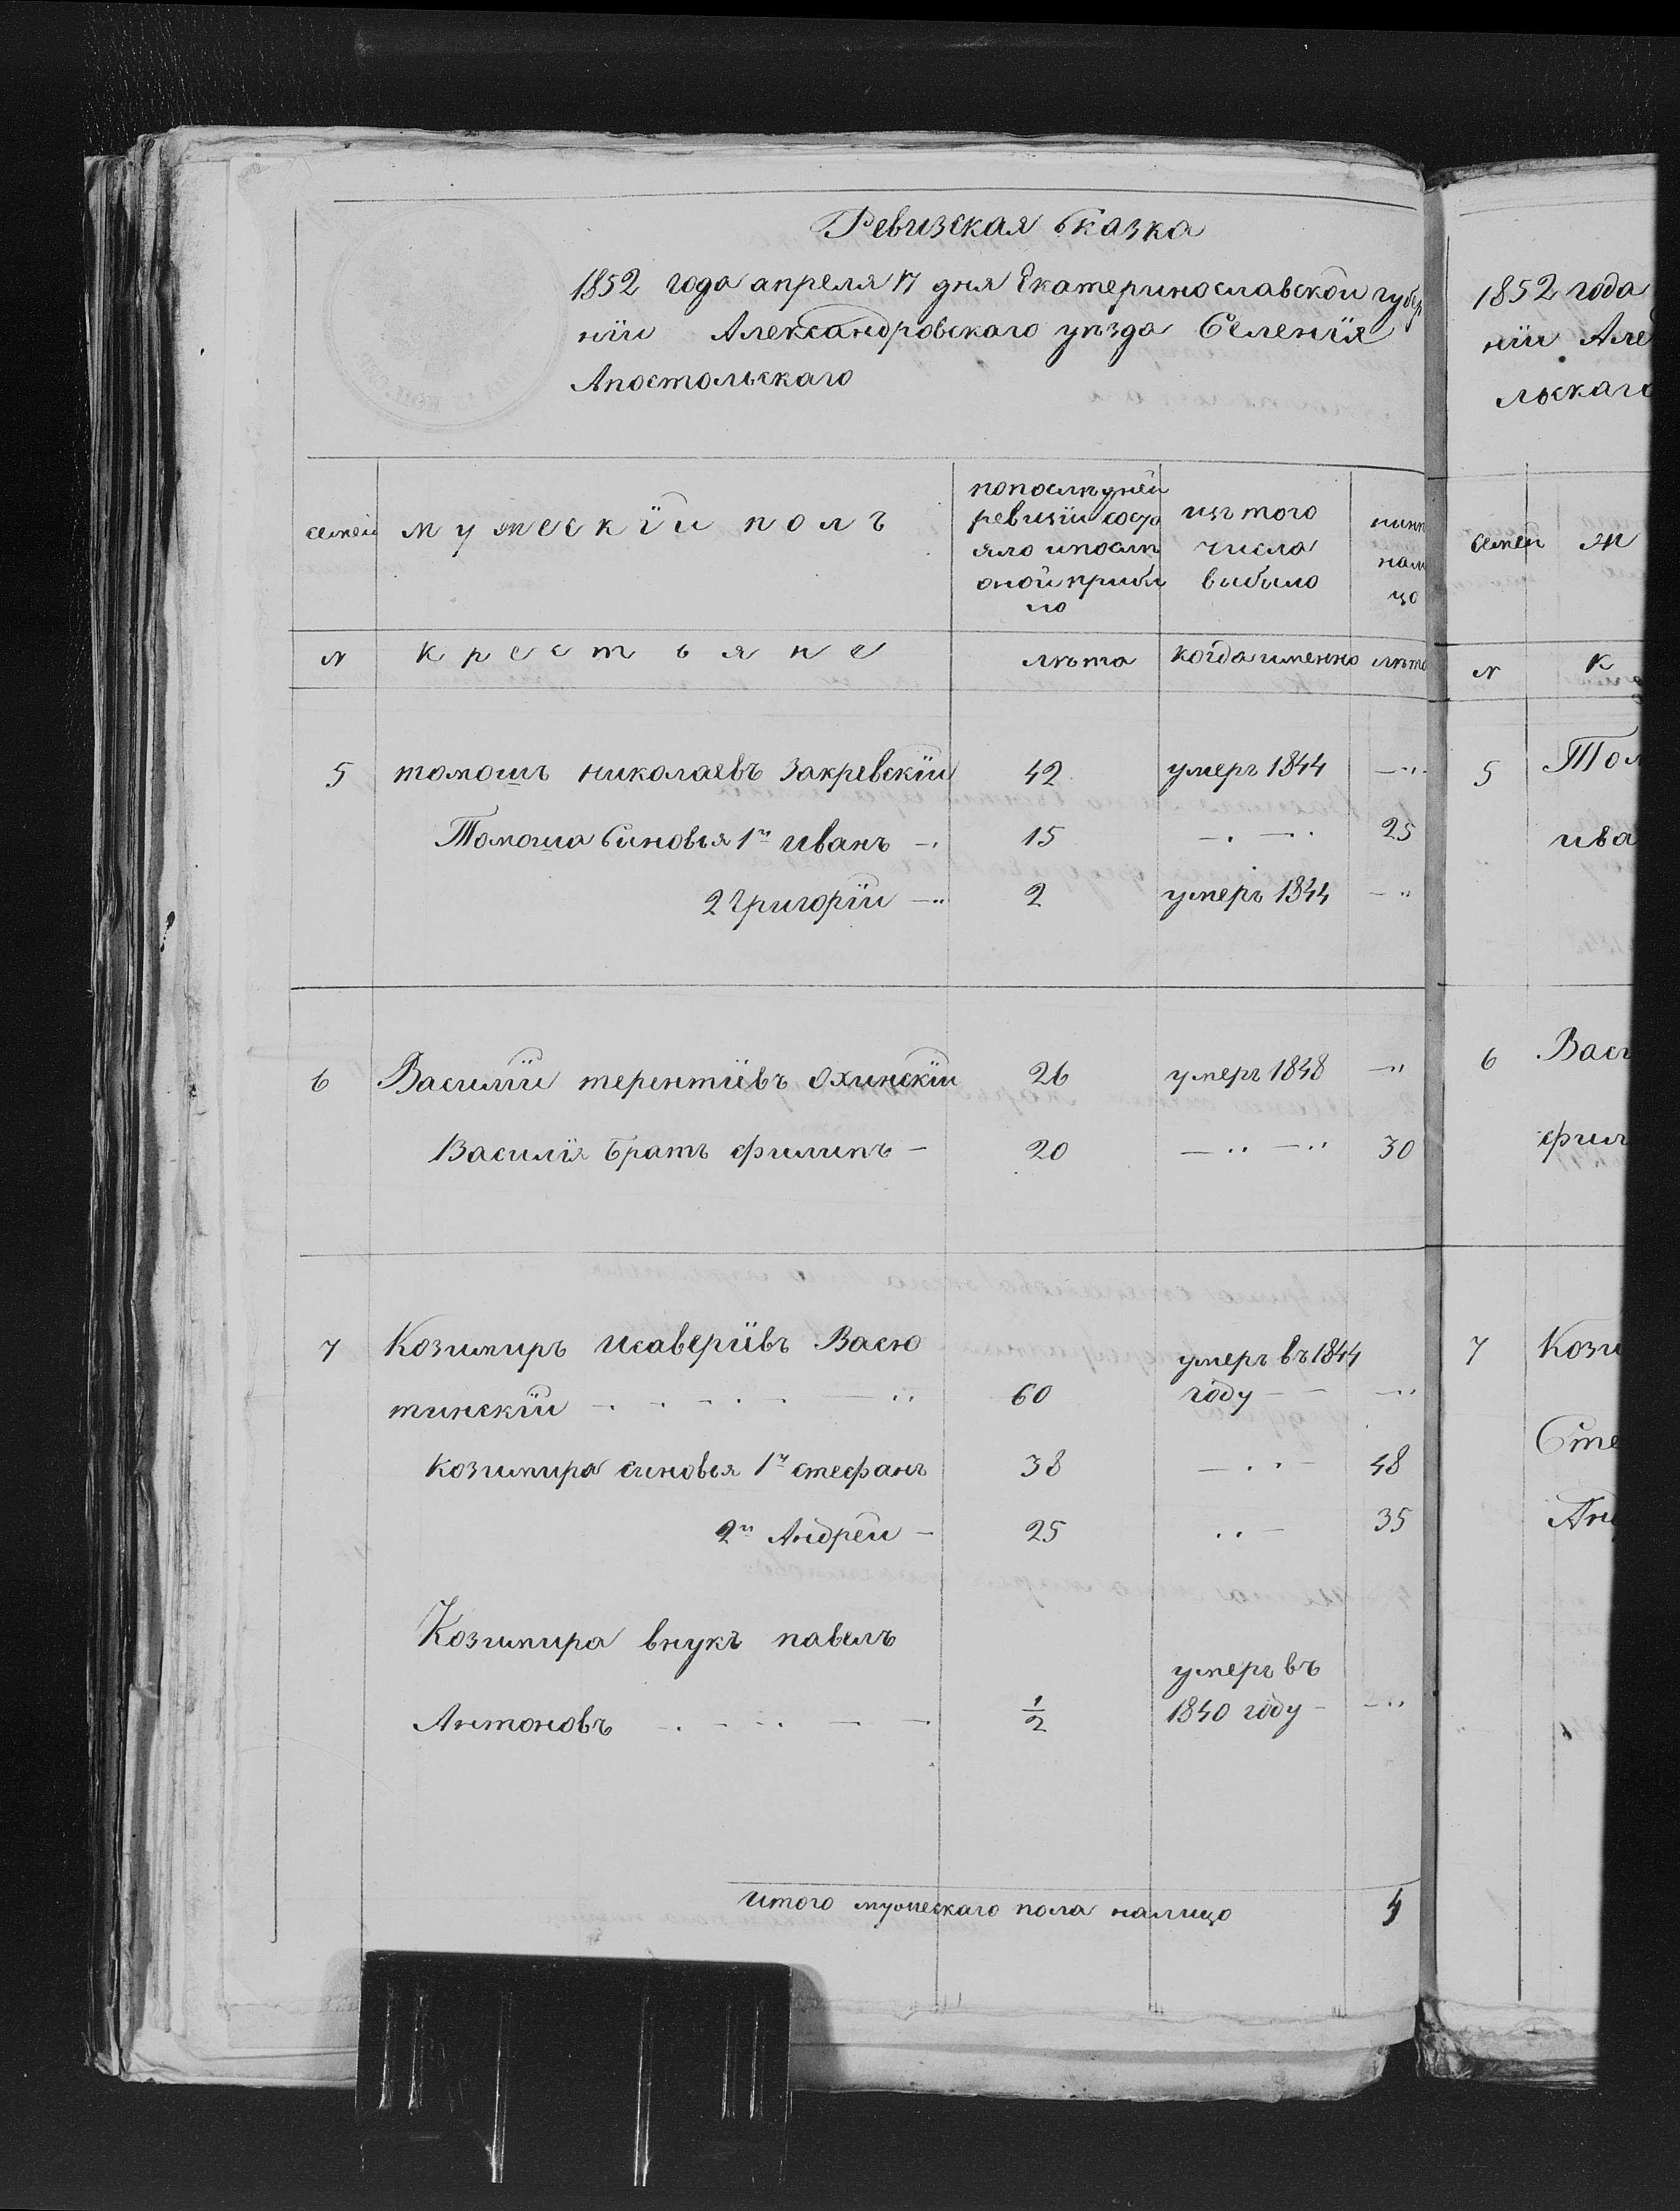 Ревизская Сказка
1852 года апреля 17 дня Екатеринославской губер
нїи Александровскаго уѣзда Селенїя
Апостольскаго
семей мужескїй полъ
попослѣдней
ревизїи состо
яло ипослѣ
оной прибы
ло
изъ того
числа
выбыло
нынѣ
нали
цо
№ крестьяне лѣта когда именно лѣта
5 томошъ николаевъ Закревскїй 42 умеръ 1844
Томоша Сыновья 1й иванъ 15 25
2 Григорїй 2 умеръ 1844
6 Василїй терентїевъ Охинскїй 26 умеръ 1848
Василїя братъ филипъ 20 30
7 Козимиръ Исаверїивъ Васю
тинскїй 60 умеръ въ 1844
году
Козимира сыновья 1й стефанъ 38 48
2й Андрей 25 35
Козимира внукъ павелъ
Антоновъ 1/2 умеръ въ
1840 году
итого мужескаго пола налицо 4
1852 года
нїи Але
льскаго
семей ж
№ к
5 Том
ива
6 Васи
фили
7 Кози
Сте
Анд